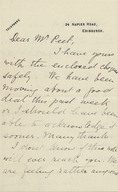 24 Napier Road,
Edinburgh.
Dear Mr Peet,
I have yours
with the enclosed
safely. We have been
moving about a good
deal this past week
or I should have been
able to acknowledge it
sooner. Many thanks.
I don't know if this note
will ever reach you. We
are feeling rather anxious